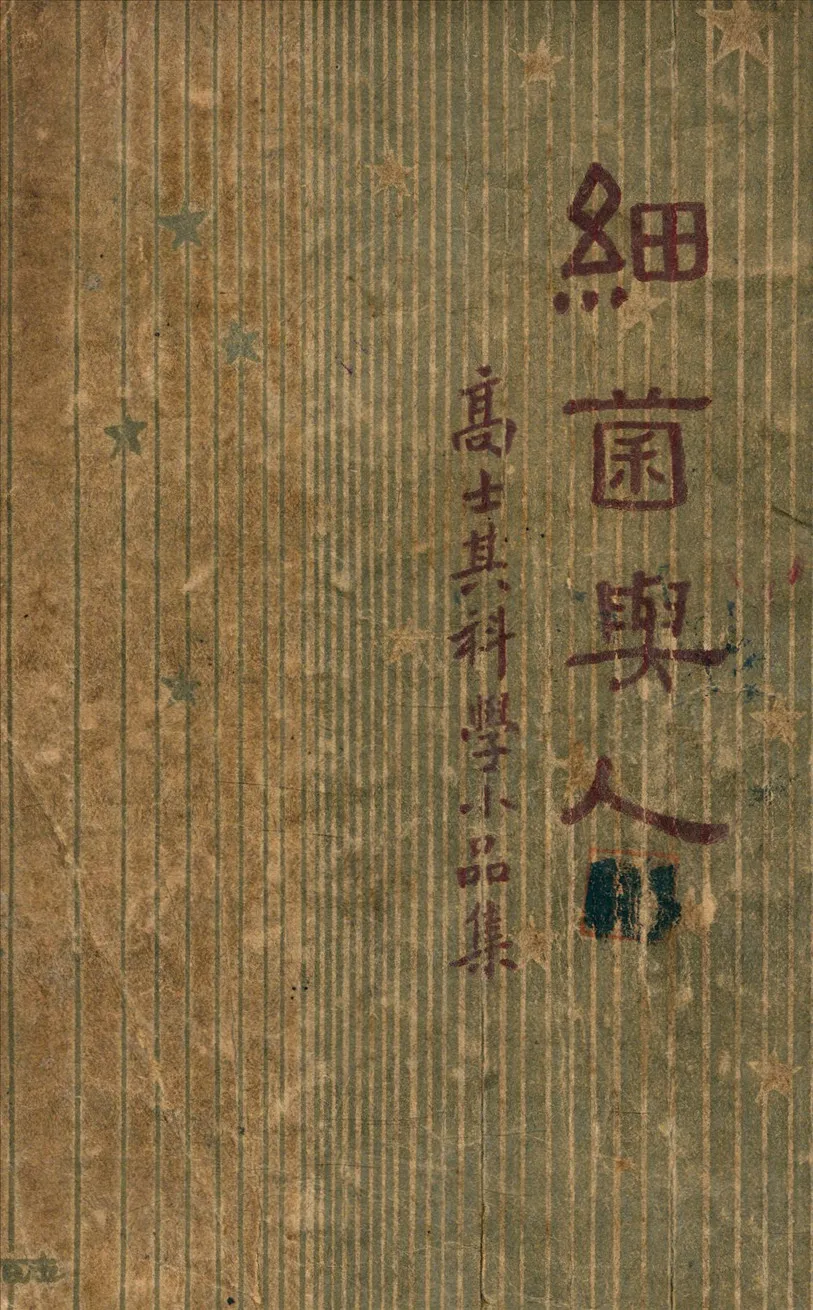 細菌與人
高士其科學小品集